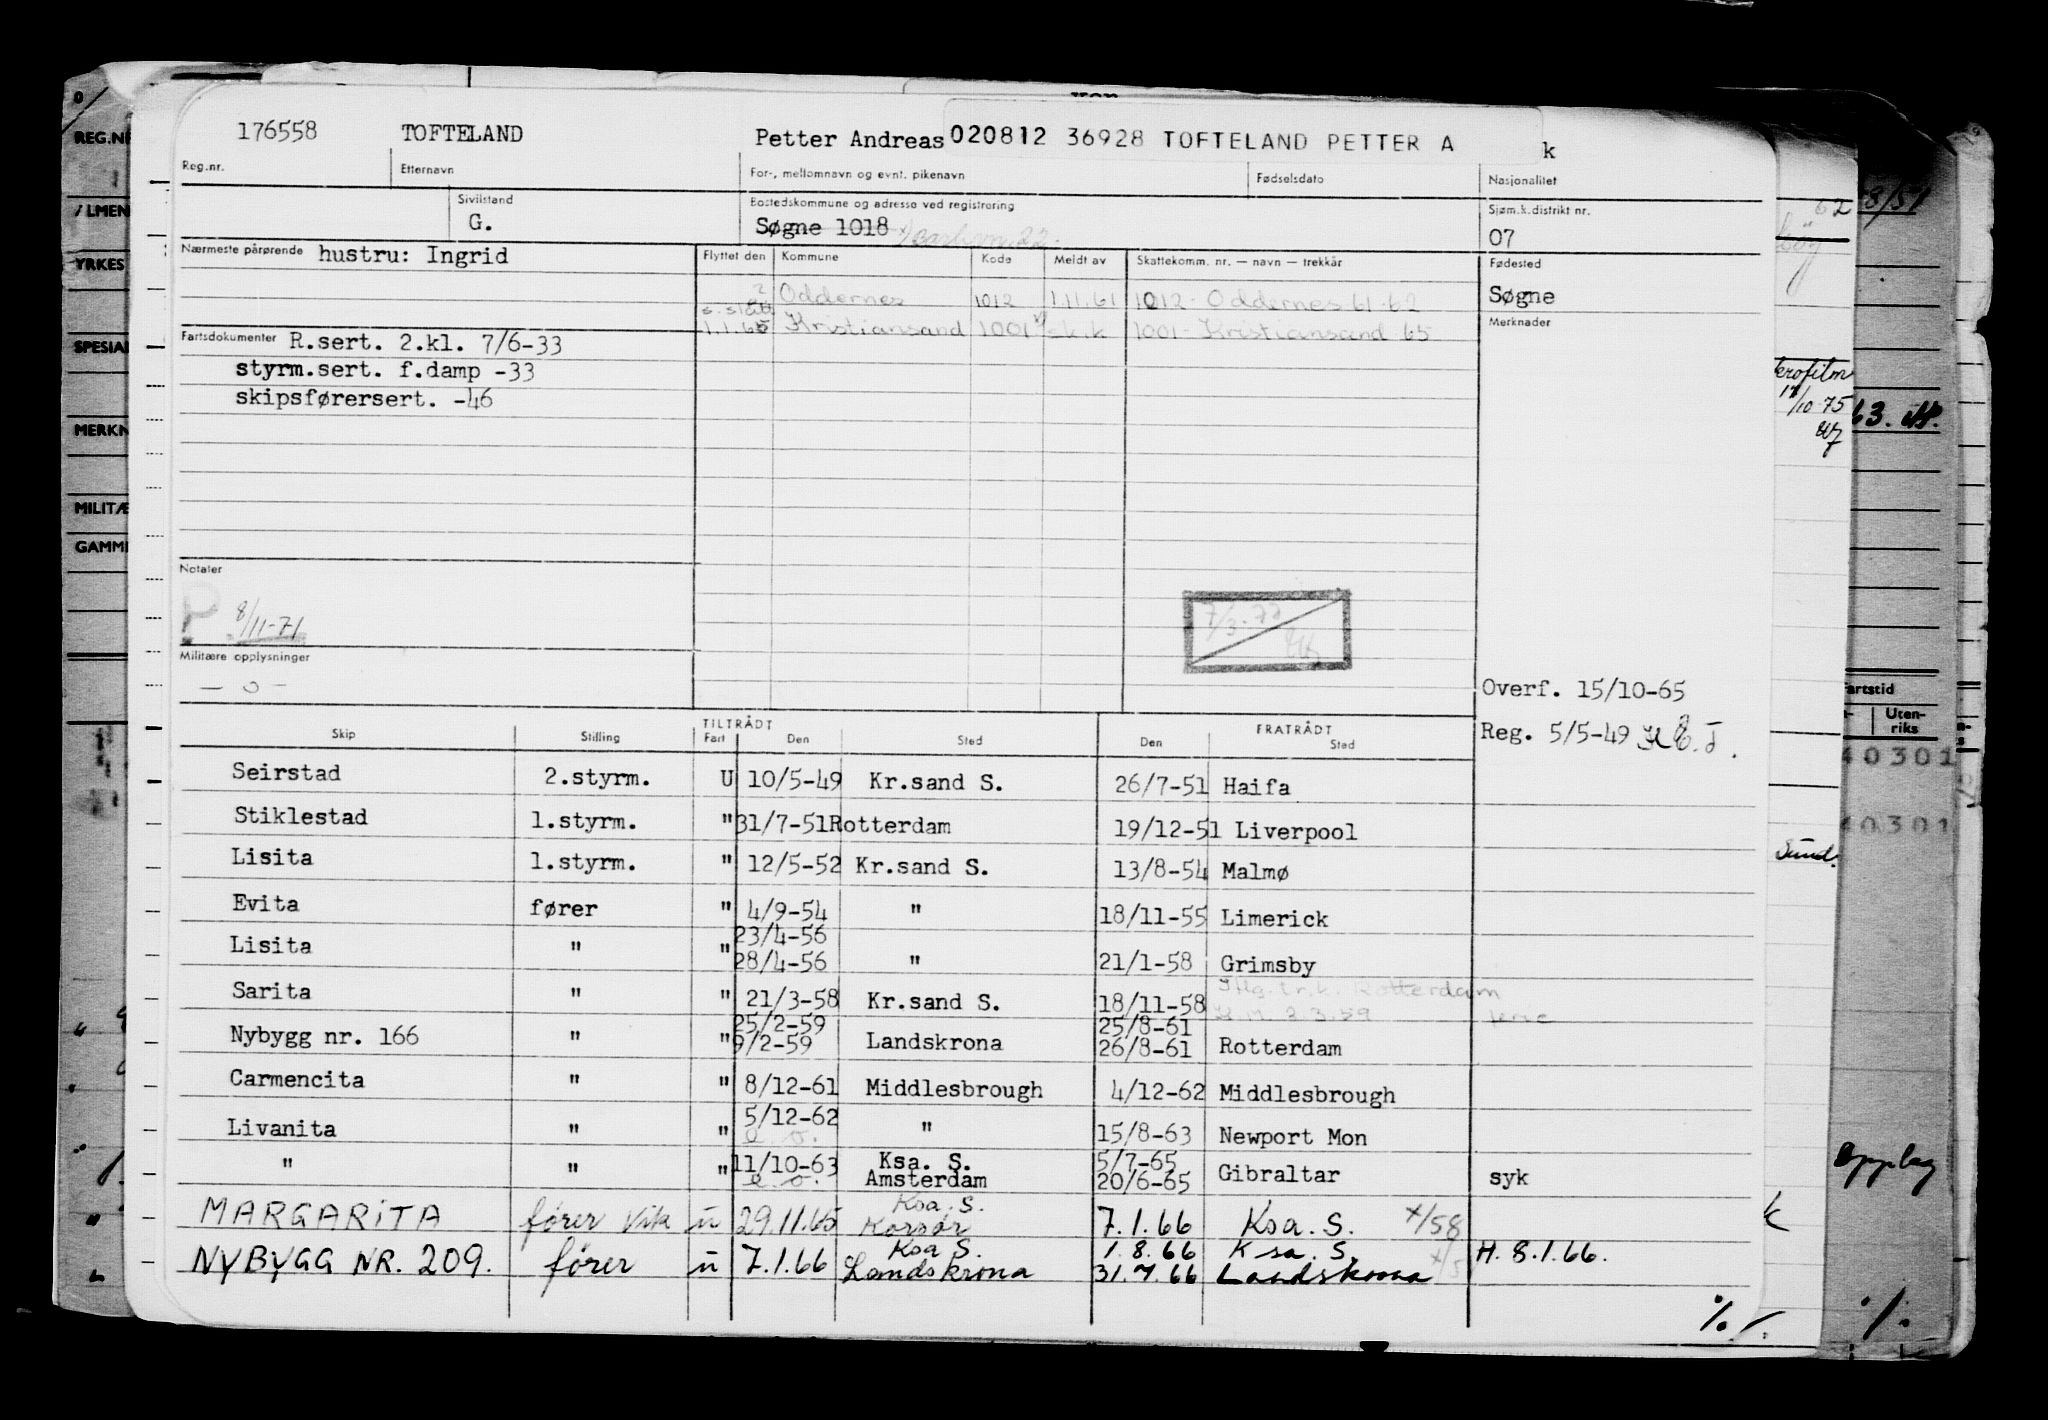 176558 TOFTELAND Petter Andreas 020812 36928 TOFTELAND PETTER A k
Reg.nr. Etternavn For-, mellomnavn og evnt. pikenavn Fødselsdato Nasjonalitet
Sivilstand Bostedskommune og adresse ved registrering Sjøm.k.distrikt nr.
G. Søgne 1018 07
Nærmeste pårørende hustru: Ingrid Flyttet den Kommune Kode Meldt av Skattekomm. nr. — navn — trekkår Fødested
Oddernes 1012 1.11.61 1012 - Oddernes 61-62 Søgne
1.1.65 Kristiansand 1001 sk.k 1001 - Kristiansand 65 Merknader
Fartsdokumenter R.sert. 2.kl. 7/6-33
styrm.sert. f.damp -33
skipsførersert. -46
Notater
P. 8/11-71
7/3.72
Militære opplysninger
— o —
Overf. 15/10-65
Reg. 5/5-49
TILTRÅDT FRATRÅDT
Skip Stilling Fart Den Sted Den Sted
Seirstad 2.styrm. U 10/5-49 Kr.sand S. 26/7-51 Haifa
Stiklestad 1.styrm. " 31/7-51 Rotterdam 19/12-51 Liverpool
Lisita 1.styrm. " 12/5-52 Kr.sand S. 13/8-54 Malmø
Evita fører " 4/9-54 " 18/11-55 Limerick
23/4-56
Lisita " " 28/4-56 " 21/1-58 Grimsby
Sarita " " 21/3-58 Kr.sand S. 18/11-58 Rotterdam
2.3.59
25/2-59 25/8-61
Nybygg nr. 166 " " 9/2-59 Landskrona 26/8-61 Rotterdam
Carmencita " " 8/12-61 Middlesbrough 4/12-62 Middlesbrough
5/12-62
Livanita " " " 15/8-63 Newport Mon
11/10-63 Ksa. S. 5/7-65
" " " Amsterdam 20/6-65 Gibraltar syk
Ksa. S.
MARGARITA fører Vik u 29.11.65 Korsør 7.1.66 Ksa. S. x/58
Ksa S. 1.8.66 Ksa. S.
NYBYGG NR. 209. fører u 7.1.66 Landskrona 31.7.66 Landskrona H. 8.1.66.
REG.NR
/ LMEN
YRKES
SPESIAL
MERKN
MILITÆ
GAMME
8/51
62
17/10-75
63.
artstid
Uten-
riks
40301
40301
Sund.
Opplag